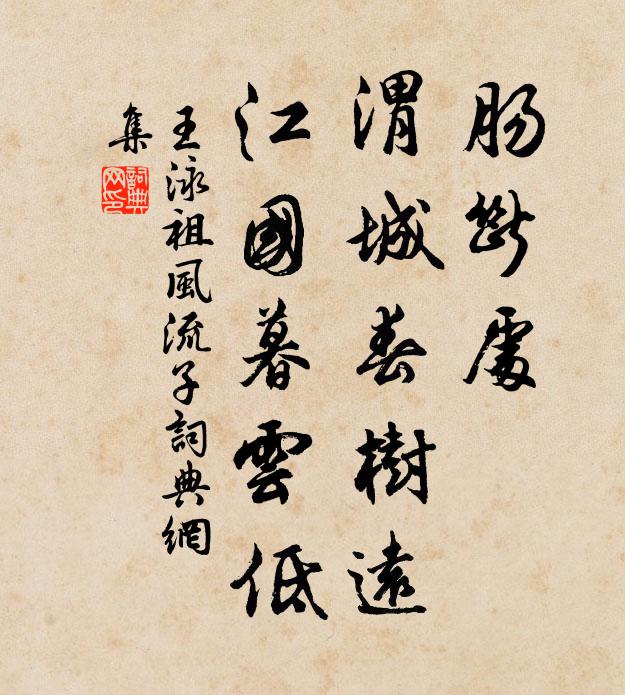 腸斷處
渭城春樹遠
江國暮雲低
王泳祖風流子詞典網
集
詞典
网印